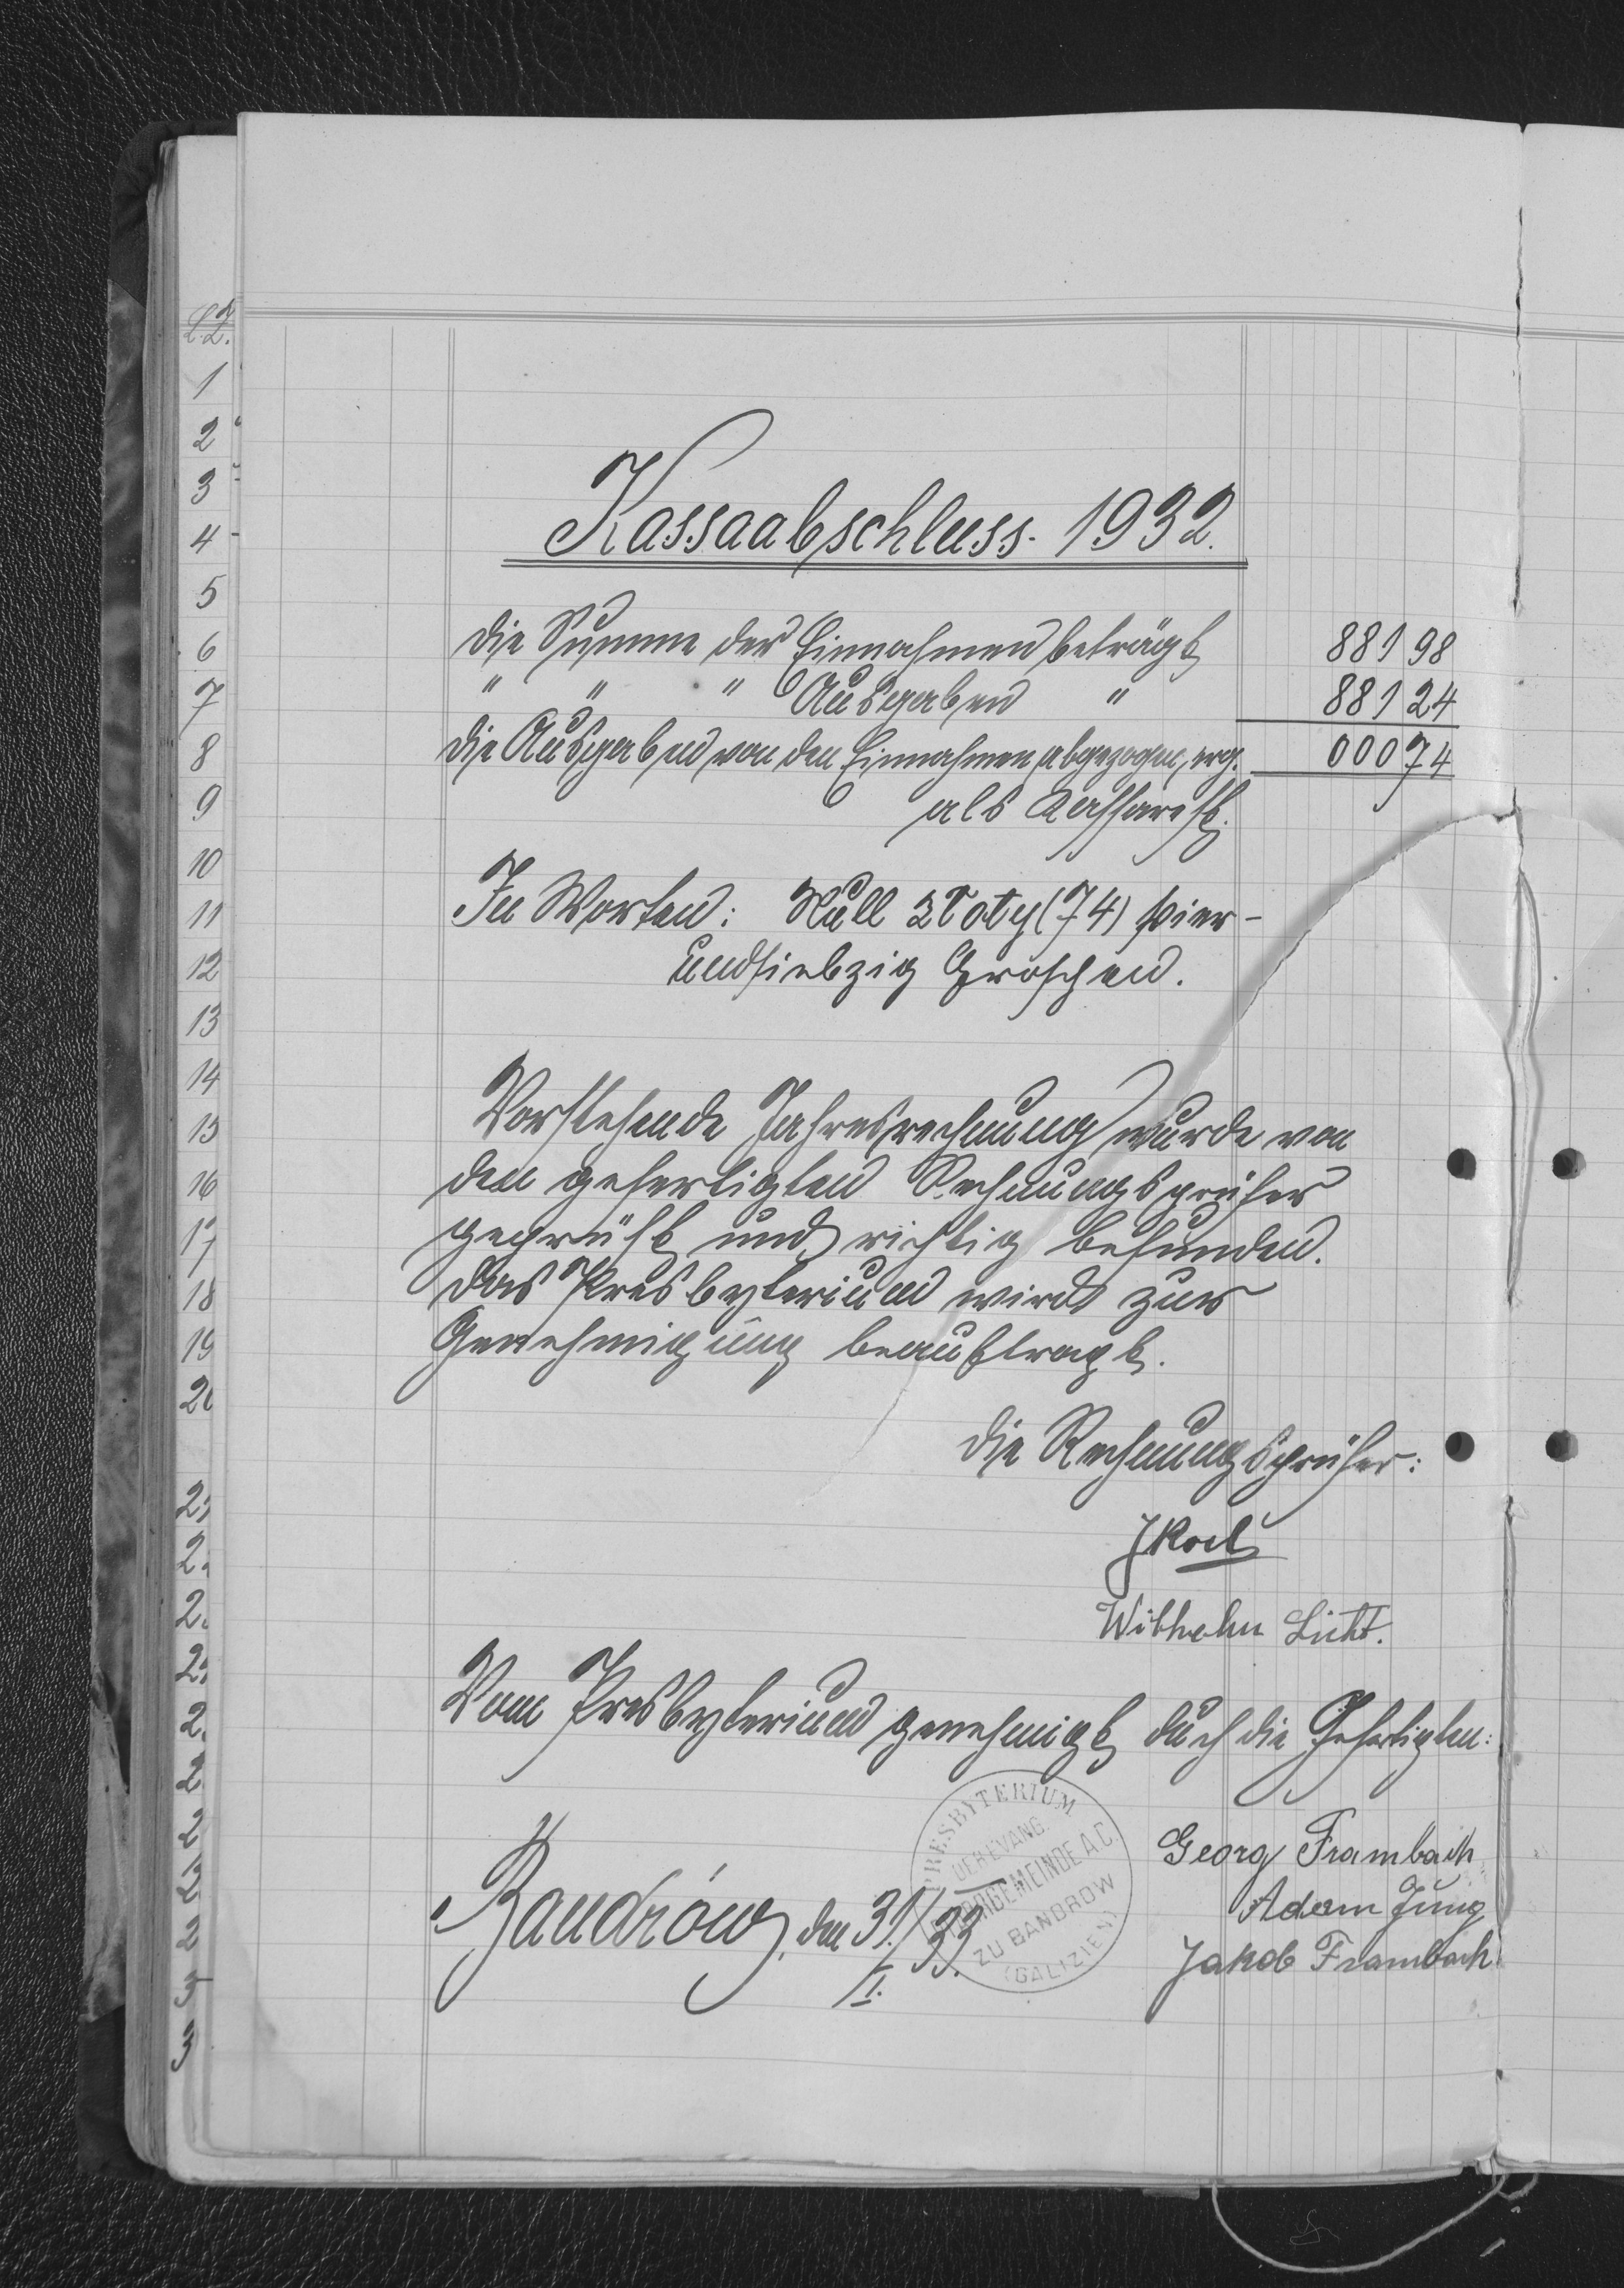 L.Z.
1
2
3
4
5
6
7
8
9
10
11
12
13
14
15
16
17
18
19
20
Kassaabschluss. 1932.
Die Summe der Einnahmen beträgt 881 98
" " " Ausgaben " 881 24
Die Ausgaben von den Einnahmen abgezogen, erg. 000 74
als Kassarest.
In Worten: Null Zloty (74) vier-
undsiebzig Groschen.
Vorstehende Jahresrechnung wurde von
den gefertigten Rechnungsprüfer
geprüft und richtig befunden.
Das Presbyterium wird zur
Genehmigung beauftragt.
Die Rechnungsprüfer:
Wilhelm Licht.
Vom Presbyterium genehmigt duch die Gefertigten:
Georg Frambach
Adam Jung
Jakob Frambach
Bandrów, den 31./I. 33.
PRESBYTERIUM
DER EVANG.
PFARRGEMEINDE A.C.
ZU BANDROW
(GALIZIEN)